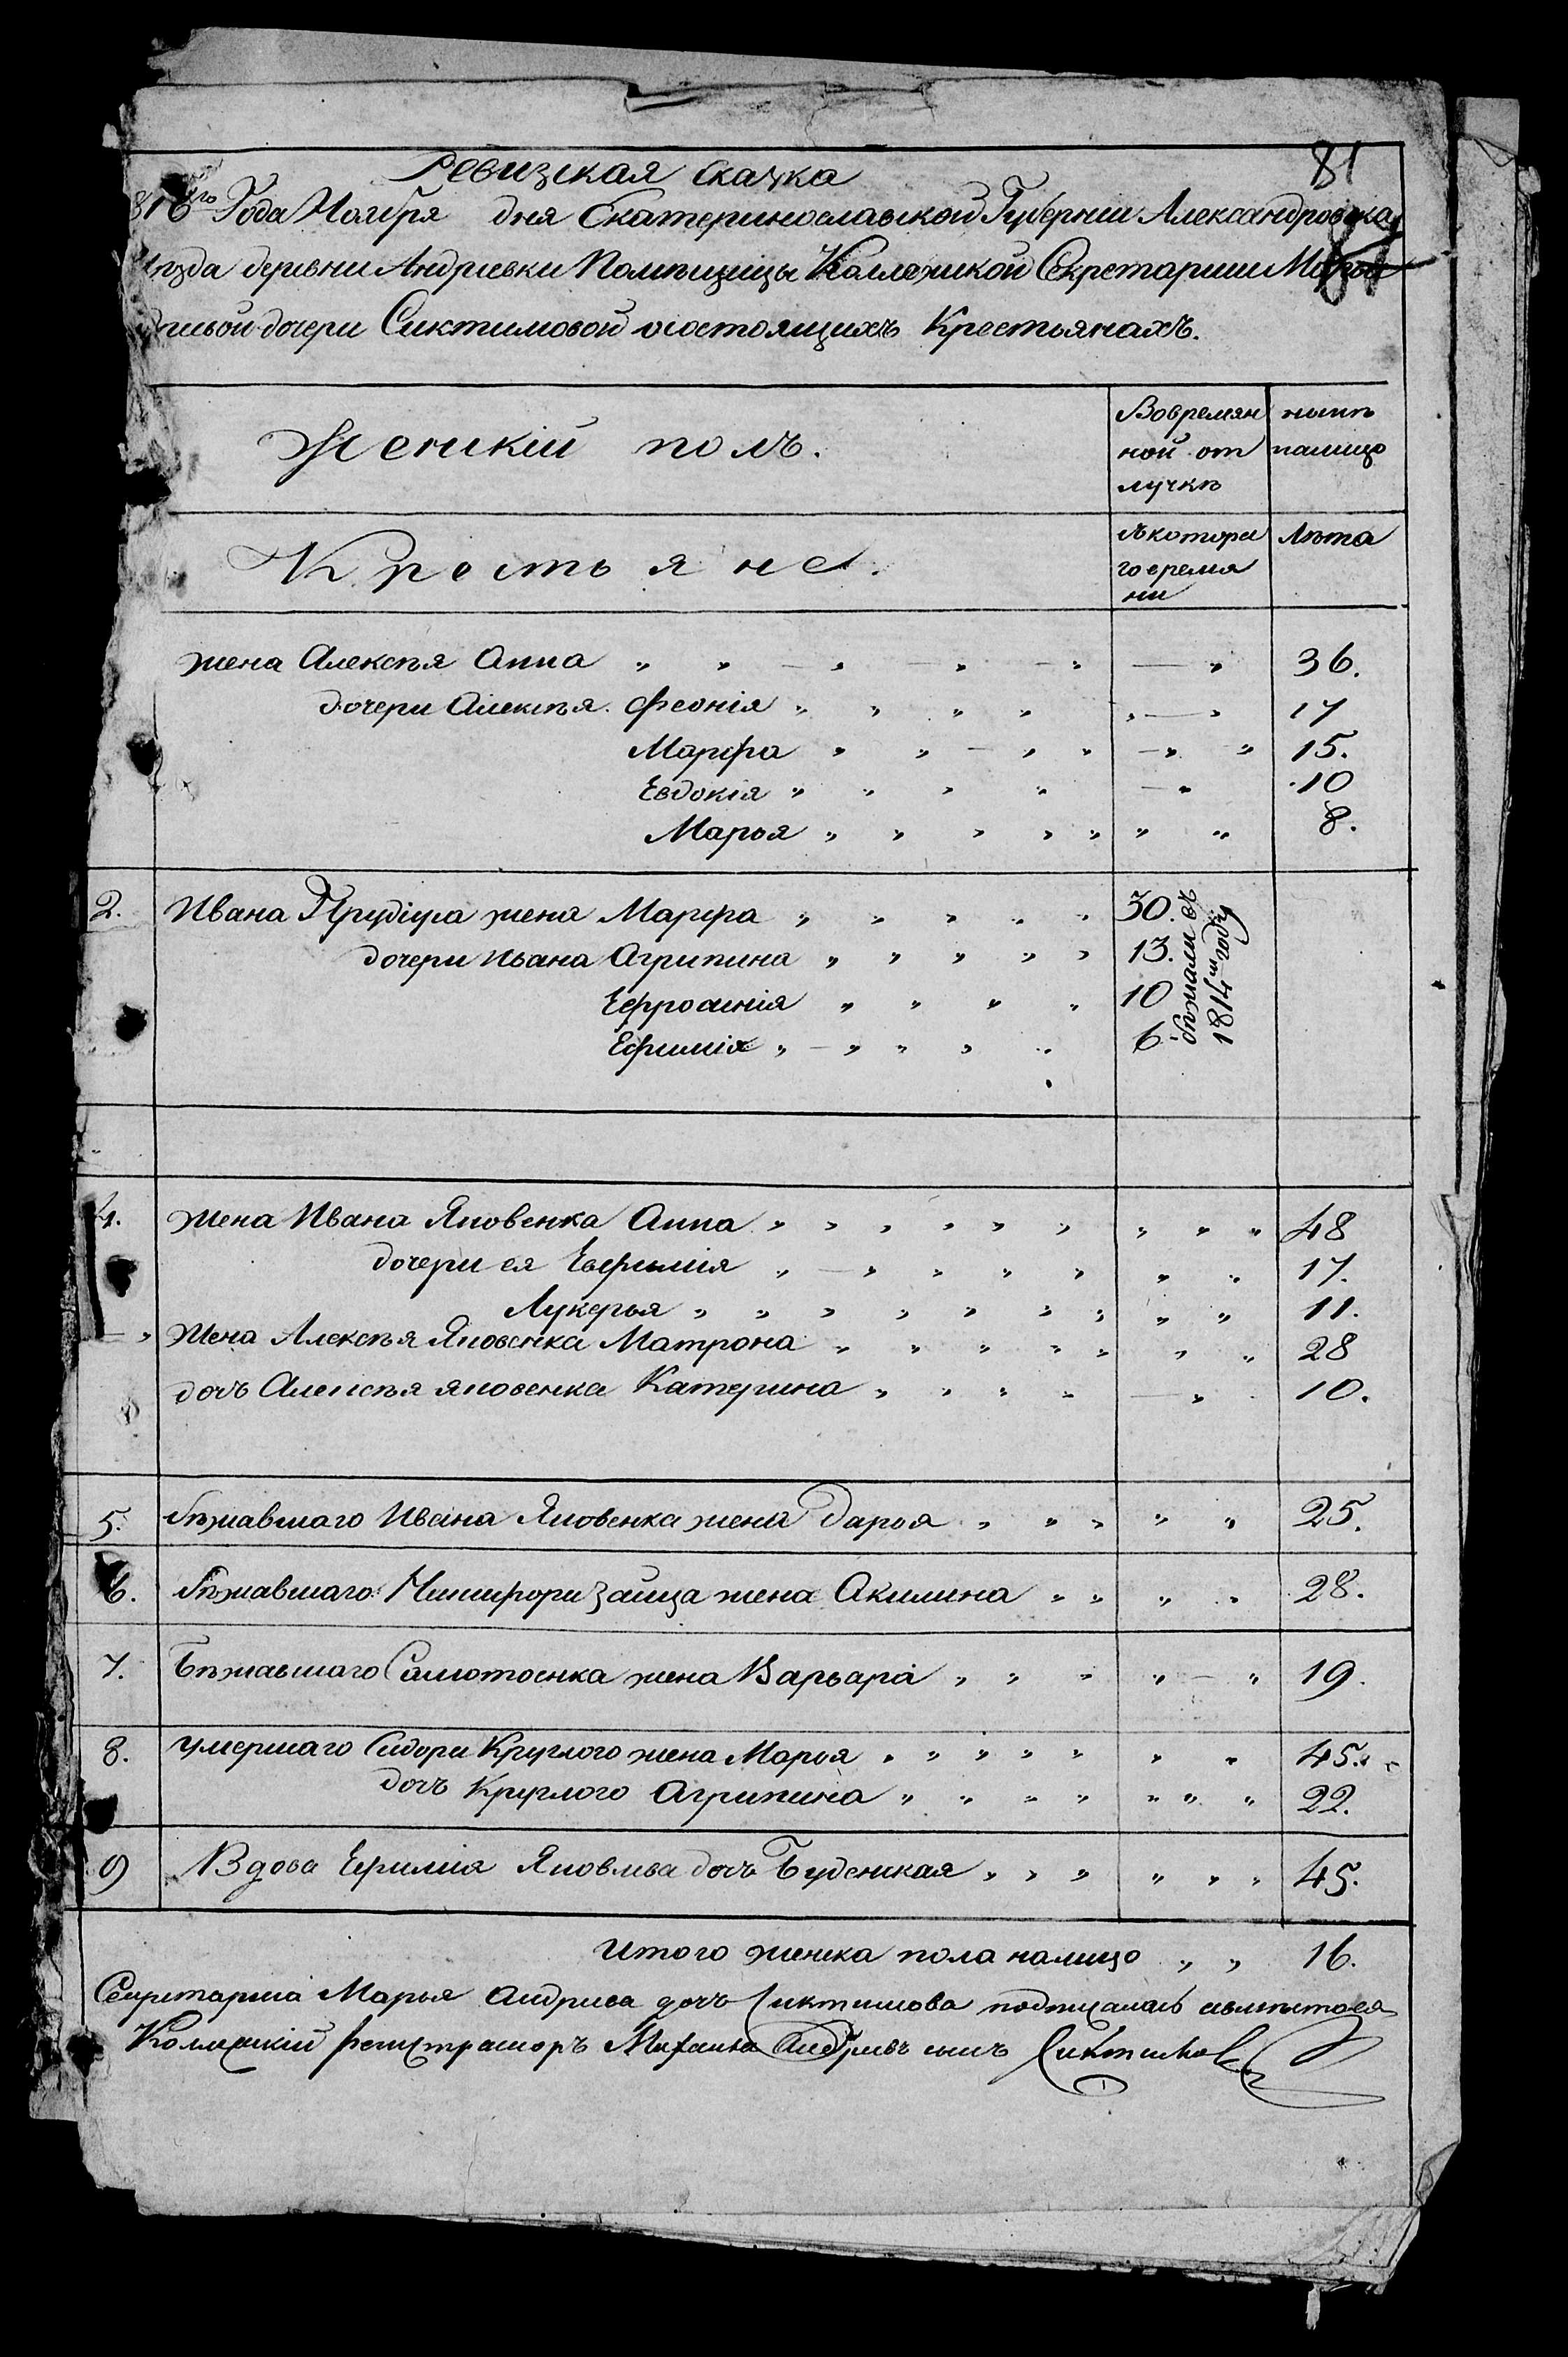 81
Ревизская Скаска
816го Года Ноября дня Екатеринославской Губернии Александровскаго
уѣзда деревни Андриевки Помѣщицы Коллежской Секретарши Марьи
Сиктимовой дочери состоящихъ Крестьянахъ.
Женский полъ.
Вовремян
ной от
лучкѣ
нынѣ
налицо
Крестьяне.
Скотора
го время
ни
Лѣта
жена Алексѣя Анна „ „ — „ — „ — „ — „ 36.
дочери Алексѣя Феонія „ „ „ „ „ — „ 17
Марфа „ „ — „ „ — „ „ 15.
Евдокія „ „ „ „ — „ 10
Марья „ „ „ „ „ „ „ 8.
2. Ивана жена Марфа „ „ „ „ „ 30.
дочери Ивана Агрипина „ „ „ „ „ 13.
Ефросинія „ „ „ „ 10
Ефимія „ — „ „ „ „ 6.
бѣжали въ
1814м году
4. жена Ивана Яковенка Анна „ „ „ „ „ „ „ „ „ 48
дочери ея Евфимія „ — „ „ „ „ „ „ 17.
Лукерья „ „ „ „ „ „ „ „ „ 11.
— „ Жена Алексѣя Яковенка Матрона „ „ „ „ „ „ „ 28
дочь Алексѣя яковенка Катерина „ „ „ „ — „ 10.
5. бѣжавшаго Ивана Яковенка жена Дарья „ „ „ „ „ 25.
6. бѣжавшаго Никифора Зайца жена Акилина „ „ „ „ 28.
7. Бѣжавшаго Самотоенка жена Варвара „ „ „ „ — „ 19.
8. умершаго Сидора Круглого жена Марья „ „ „ „ „ „ „ 45.
дочь Круглого Агрипина „ „ „ „ „ „ „ 22.
9 Вдова Ефимія Яковлева дочь Буденская „ „ „ „ „ „ 45.
Итого женска пола налицо „ „ 16.
Секретарша Марья Андриева дочь Сиктимова подписалась
Колежский Регистраторъ Михаила Андриевъ сынъ Сиктимовъ